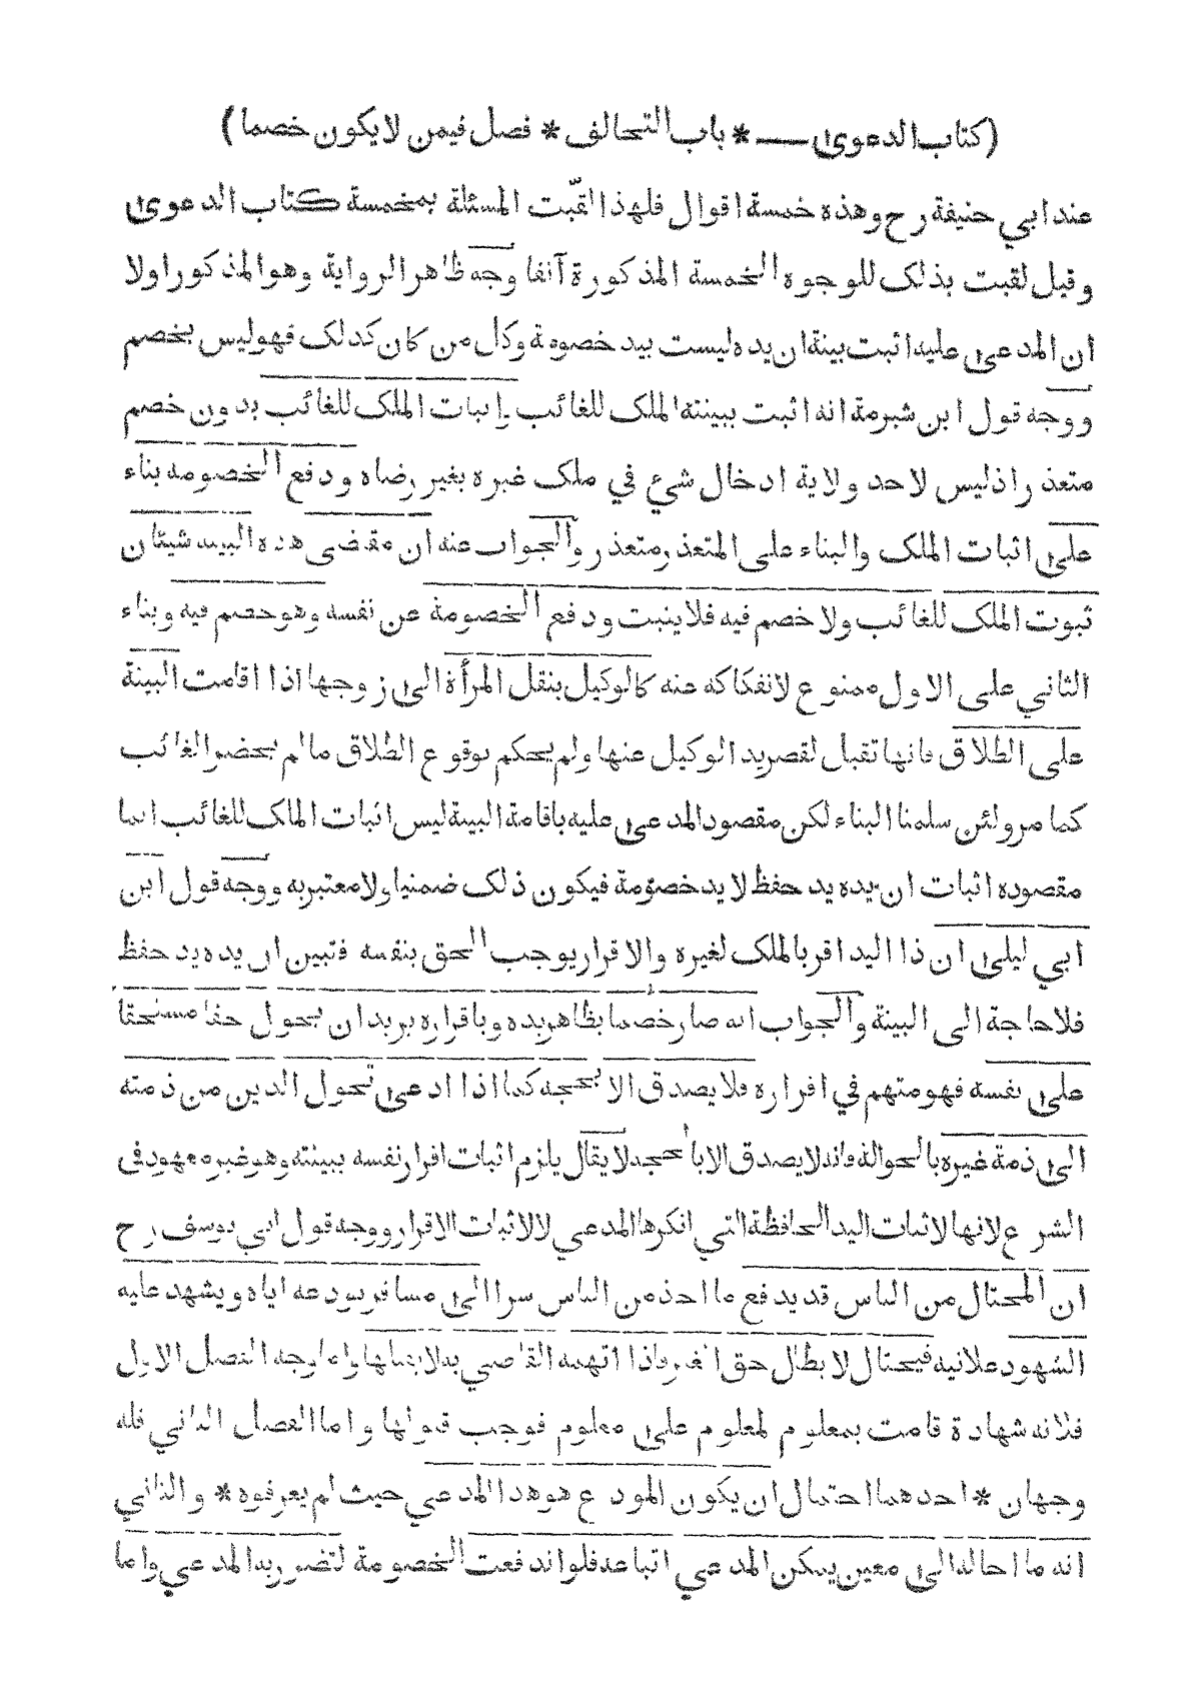 (كتاب الدعوى — * باب التحالف * فصل فيمن لا يكون خصما)
عند ابي حنيفة رح وهذه خمسة اقوال فلهذا لقّبت المسئلة بمخمسة كتاب الدعوى
وقيل لقبت بذلك للوجوه الخمسة المذكورة آنفا وجه ظاهر الرواية وهو المذكور اولا
ان المدعى عليه اثبت ببينة ان يده ليست بيد خصومة وكل من كان كذلك فهو ليس بخصم
ووجه قول ابن شبرمة انه اثبت ببينته الملك للغائب واثبات الملك للغائب بدون خصم
متعذر اذ ليس لاحد ولاية ادخال شئ في ملك غيره بغير رضاه ودفع الخصومه بناء
على اثبات الملك والبناء على المتعذر متعذر والجواب عنه ان مقتضى هذه البينه شيئان
ثبوت الملك للغائب ولا خصم فيه فلا يثبت ودفع الخصومة عن نفسه وهو خصم فيه وبناء
الثاني على الاول ممنوع لانفكاكه عنه كالوكيل بنقل المرأة الى زوجها اذا اقامت البينة
على الطلاق فانها تقبل لقصر يد الوكيل عنها ولم يحكم بوقوع الطلاق مالم يحضر الغائب
كما مر ولئن سلمنا البناء لكن مقصود المدعى عليه باقامة البينة ليس اثبات الملك للغائب انما
مقصوده اثبات ان يده يد حفظ لا يد خصومة فيكون ذلك ضمنيا ولا معتبر به ووجه قول ابن
ابي ليلى ان ذا اليد اقر بالملك لغيره والاقرار يوجب الحق بنفسه فتبين ان يده يد حفظ
فلا حاجة الى البينة والجواب انه صار خصما بظاهر يده وباقراره يريد ان يحول حقا مستحقا
على نفسه فهو متهم في اقراره فلا يصدق الا بحجه كما اذا ادعى تحول الدين من ذمته
الى ذمة غيره بالحوالة فانه لا يصدق الا بالحجه لا يقال يلزم اثبات اقرار نفسه ببينته وهو غير معهود في
الشرع لانها لاثبات اليد الحافظة التي انكرها المدعي لا لاثبات الاقرار ووجه قول ابي يوسف رح
ان المحتال من الناس قد يدفع ما اخذ من الناس سرا الى مسافر يودعه اياه ويشهد عليه
الشهود علانيه فيحتال لابطال حق الغير فاذا اتهمه القاضي به لا يقبلها واما وجه الفصل الاول
فلانه شهادة قامت بمعلوم لمعلوم على معلوم فوجب قبولها واما الفصل الثاني فله
وجهان * احدهما احتمال ان يكون المودع هو هذا المدعي حيث لم يعرفوه * والثاني
انه ما احاله الى معين يمكن المدعي اتباعه فلو اندفعت الخصومة لتضرر به المدعي واما